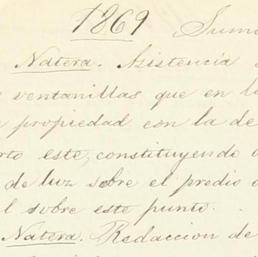 1869 Suma
Natera. Asistencia
ventanillas que en la
propiedad con la de
este, constituyendo
de luz sobre el predio
sobre este punto.
Natera. Redaccion de